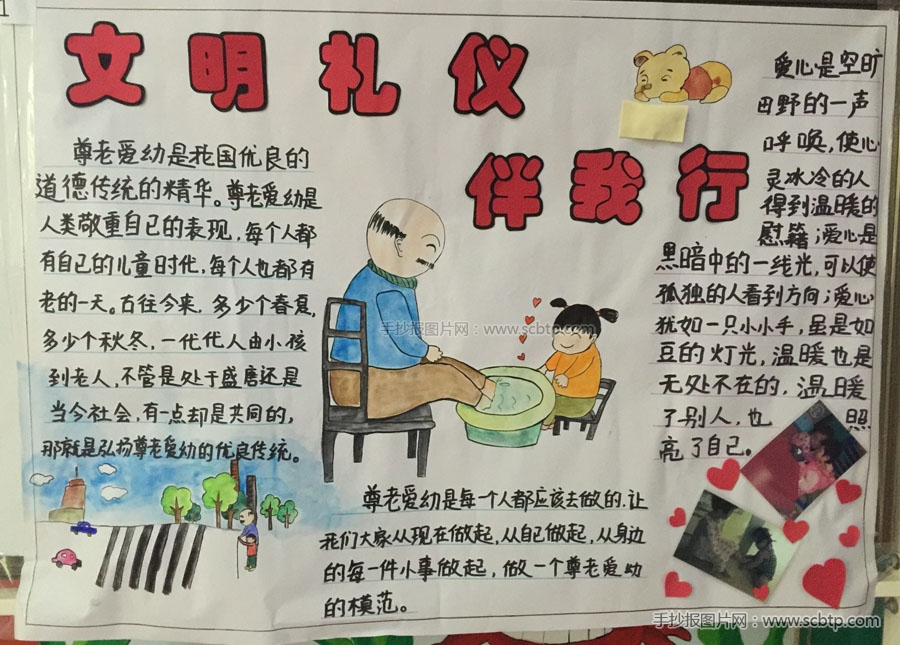 文明礼仪
伴我行
尊老爱幼是我国优良的
道德传统的精华。尊老爱幼是
人类敬重自己的表现,每个人都
有自己的儿童时代,每个人也都有
老的一天。古往今来,多少个春夏,
多少个秋冬,一代代人由小孩
到老人,不管是处于盛唐还是
当今社会,有一点却是共同的,
那就是弘扬尊老爱幼的优良传统。
尊老爱幼是每个人都应该去做的.让
我们大家从现在做起,从自己做起,从身边
的每一件小事做起,做一个尊老爱幼
的模范。
爱心是空旷
田野的一声
呼唤,使心
灵冰冷的人
得到温暖的
慰籍;爱心是
黑暗中的一线光,可以使
孤独的人看到方向;爱心
犹如一只小小手,虽是如
豆的灯光,温暖也是
无处不在的,温暖
了别人,也照
亮了自己。
手抄报图片网:www.scbtp.com
手抄报图片网:www.scbtp.com